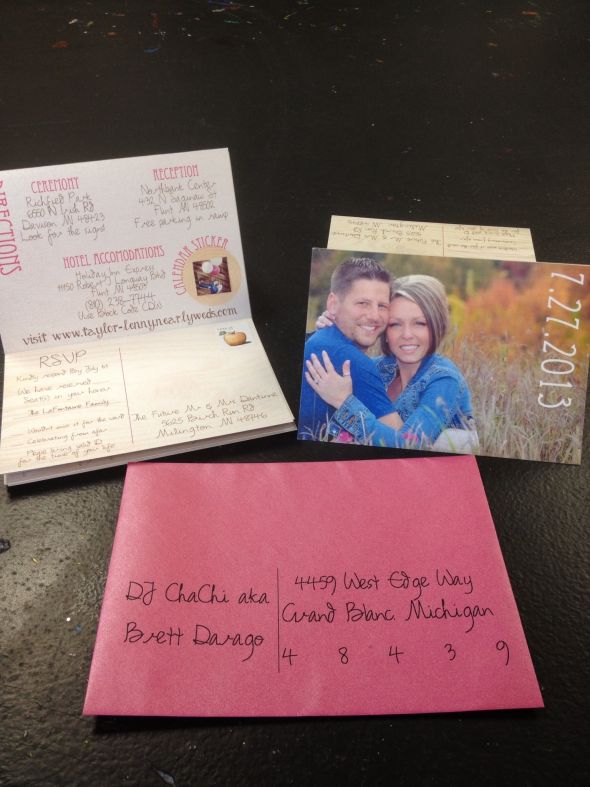 DIRECTIONS
CEREMONY
Richfield Park
6550 N Irish Rd
Davison MI 48423
Look for the signs!
RECEPTION
Northbank Center
432 N Saginaw St
Flint MI 48502
Free parking in ramp
HOTEL ACCOMODATIONS
Holiday Inn Express
1150 Robert T Longway Blvd
Flint MI 48503
(810) 238-7744
Use Block Code CDW
CALENDAR STICKER
visit www.taylor-lennynearlyweds.com
RSVP
Kindly respond by July 1st
We have reserved
Seat(s) in your honor
The LaFontaine Family
Wouldn't miss it for the world
Celebrating from afar
Please bring valid ID
for the time of your life
The Future Mr & Mrs Dantinne
5625 Birch Run Rd
Millington MI 48746
7.27.2013
DJ ChaChi aka
Brett Darago
4459 West Edge Way
Grand Blanc Michigan
4 8 4 3 9